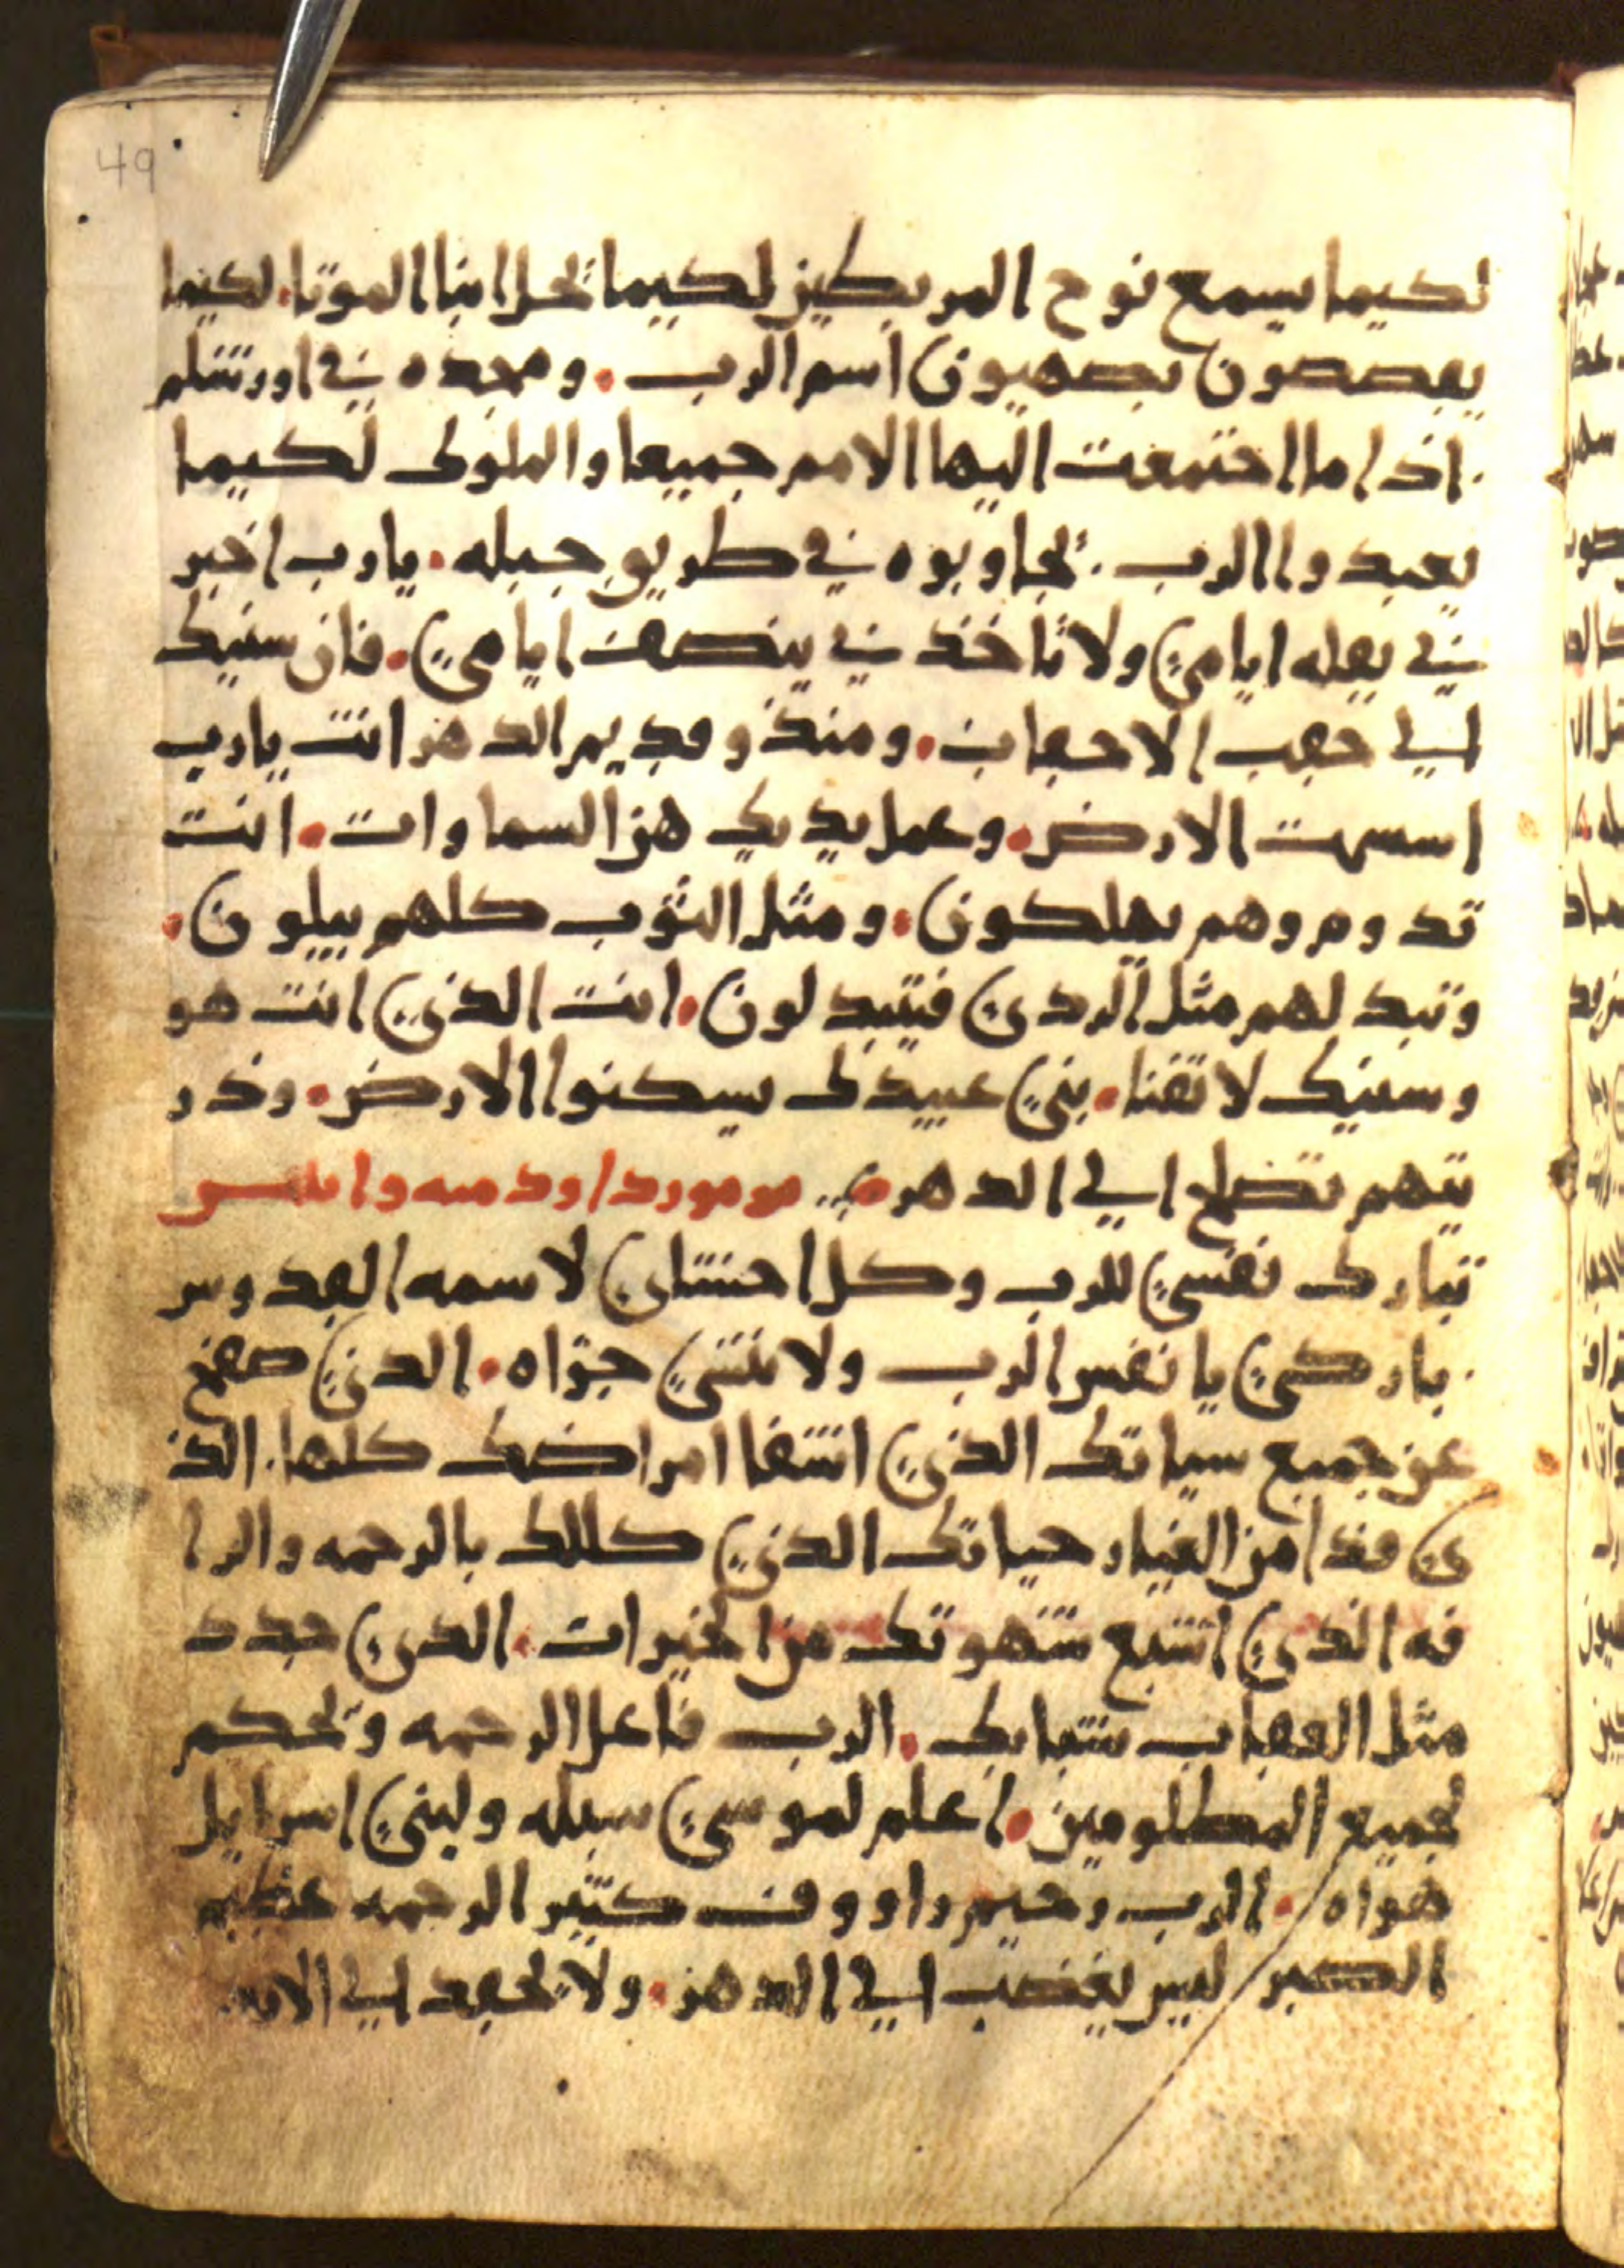 49
لكيما يسمع نوح المربطين لكيما يحل ابنا الموتا. لكيما
يقصصون بصهيون اسم الرب. ومجده في اورشلم
. اذا ما اجتمعت اليها الامم جميعا والملوك لكيما
يعبدوا الرب. يجاوبوه في طريق جبله. يا رب اخبر
ني بقله ايامي ولا تاخذني بنصف ايامي. فان سنيك
الي حقب الاحقاب. ومنذ وقديم الدهر انت يا رب
اسست الارض. وعمل يديك هن السماوات. انت
تدوم وهم يهلكون. ومثل الثوب كلهم يبلون.
وتبد لهم مثل الردي فيتبدلون. انت الذي انت هو
وسنيك لا تفنا. بني عبيدك يسكنوا الارض. وذر
يتهم تصلح الي الدهر. مزمور داود ميه واثنين
تبارك نفسي للرب وكل احشاي لاسمه القدوس
. باركي يا نفس الرب ولا تنسي جزاه. الذي صفح
عن جميع سياتك الذي اشفا امراضك كلها. الذ
ي فدا من الغيار حياتك الذي كللك بالرحمه والرا
فه الذي اشبع شهوتك من الخيرات. الذي جدد
مثل العقاب شبابك. الرب فاعل الرحمه ويحكم
لجميع المظلومين. اعلم لموسي سبله ولبني اسرايل
هواه. الرب رحيم راووف كثير الرحمه عظيم
الصبر ليس يغضب الي الدهر. ولا يحقد الي الابد.